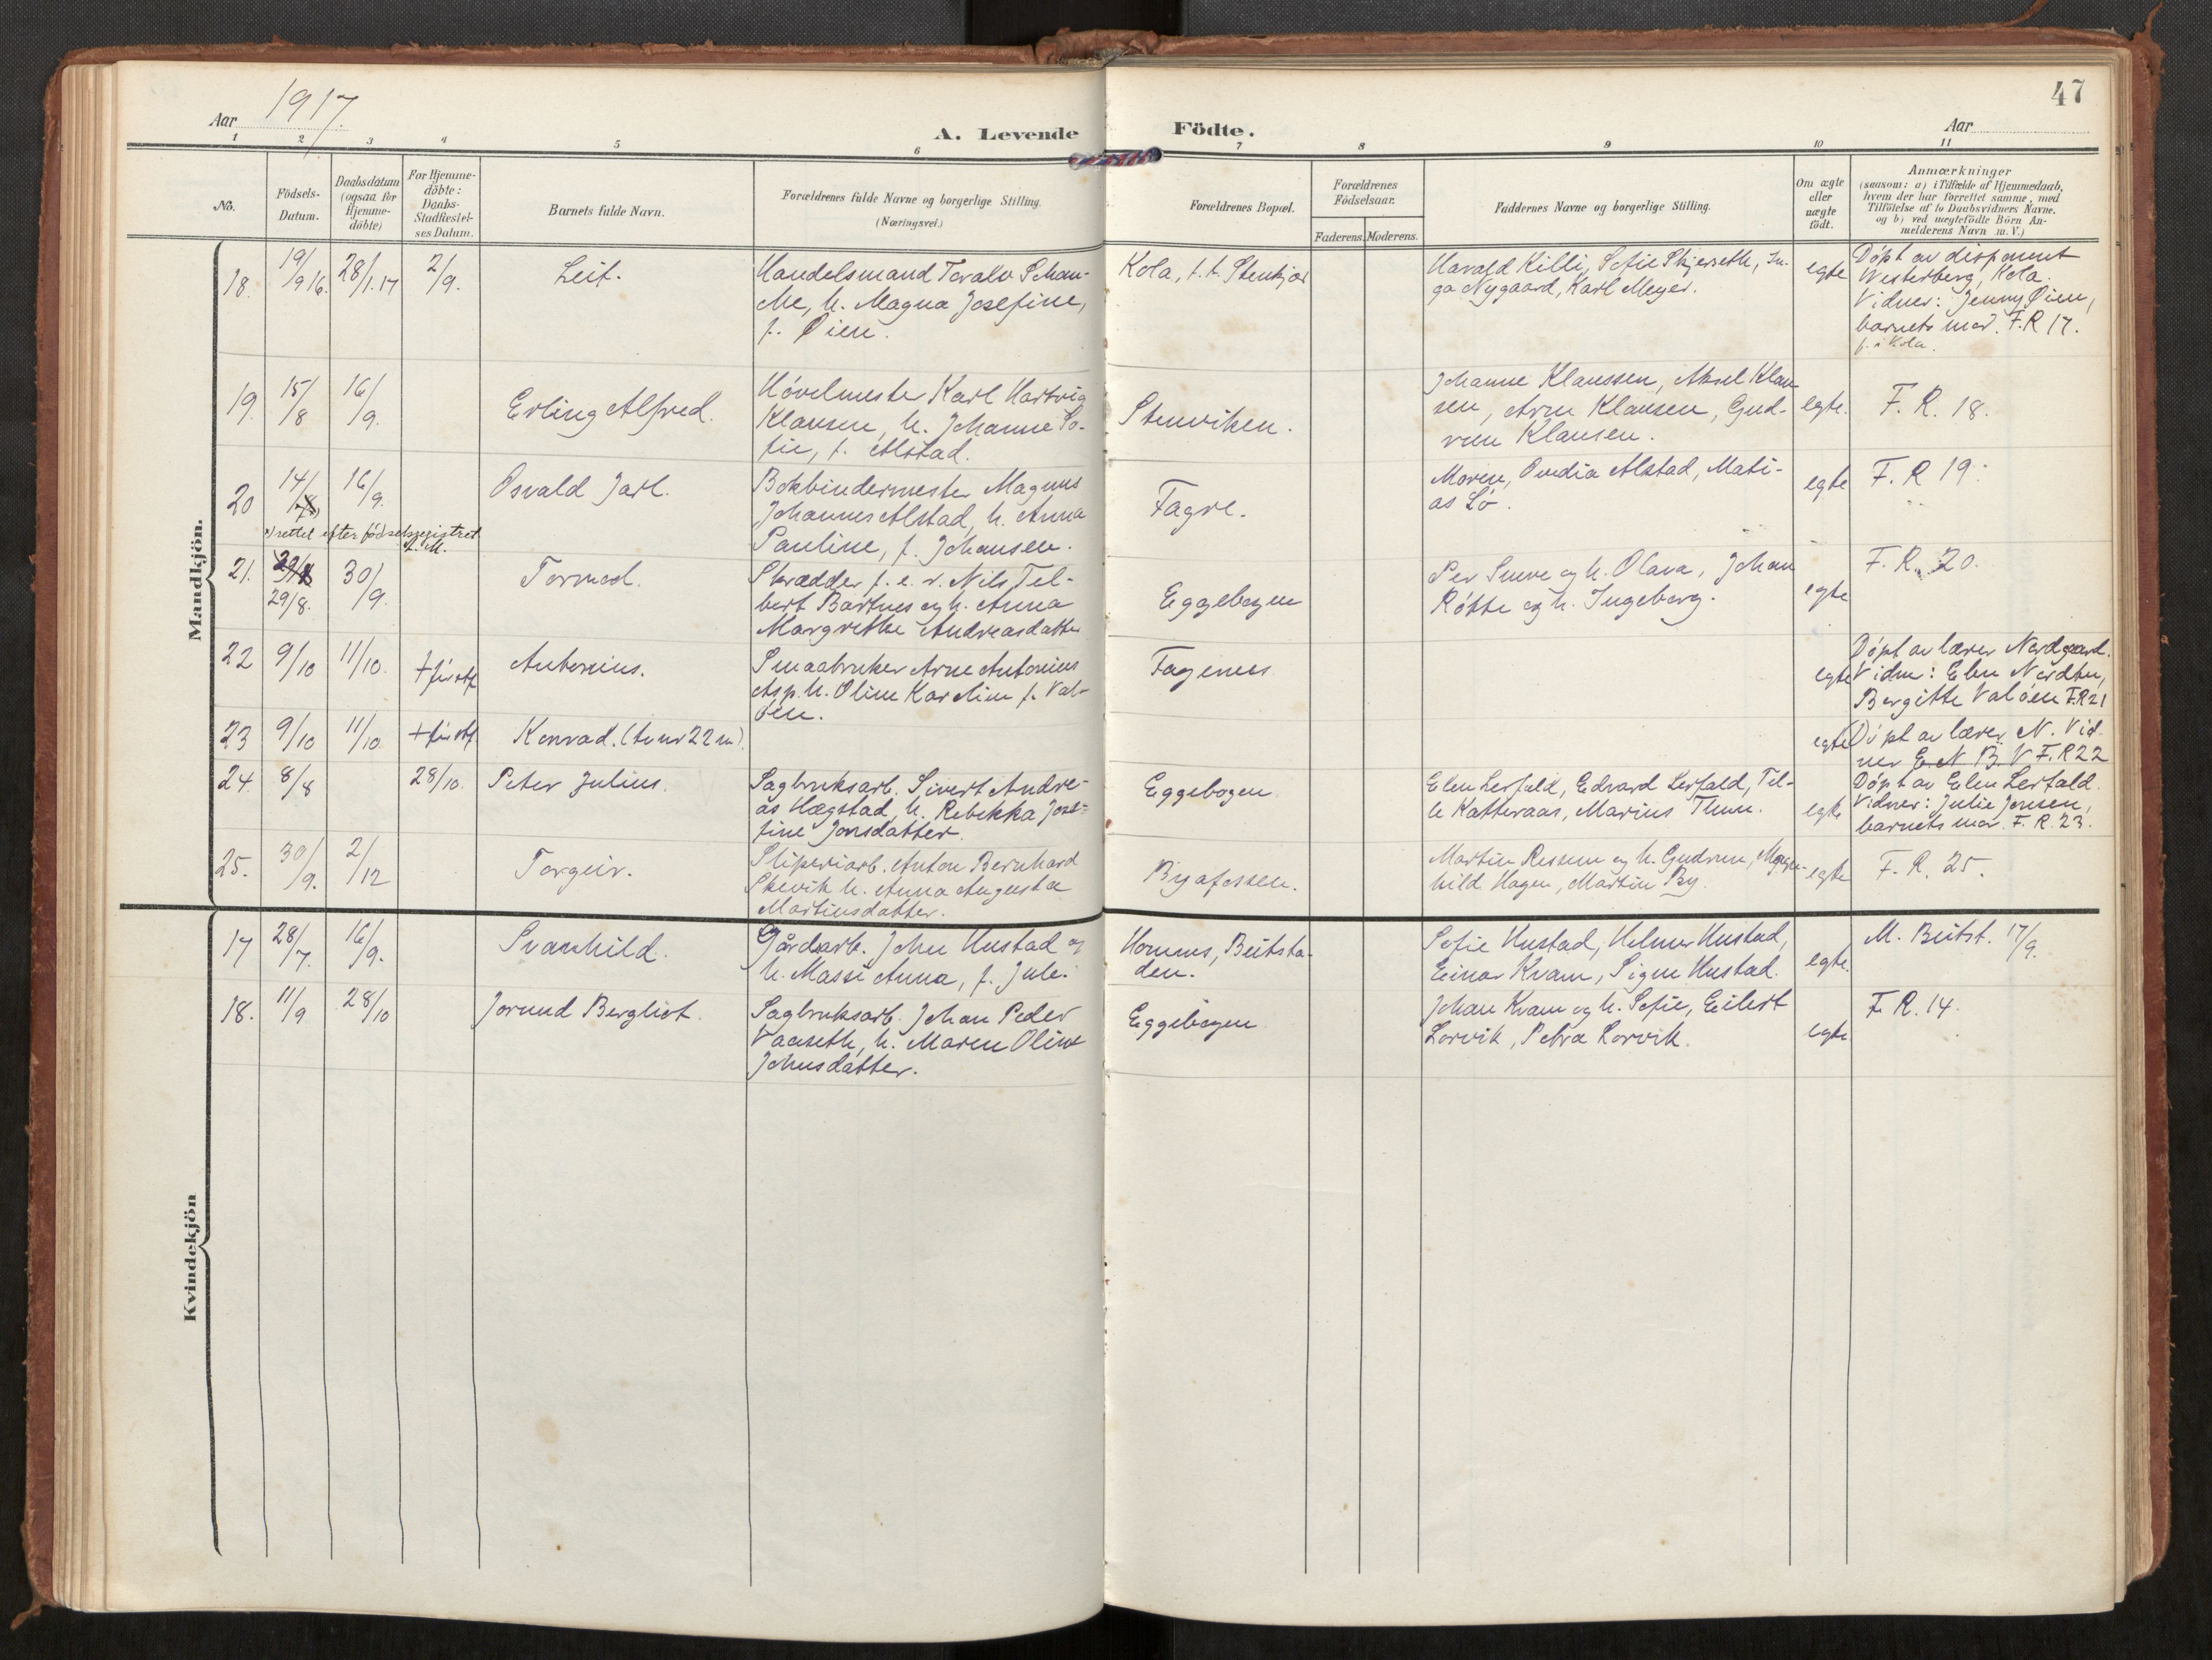 47
Aar 1917.
A. Levende Födte.
Aar
1 2 3 4 5 6 7 8 9 10 11
No.
Födsels-
Datum.
Daabsdatum
(ogsaa for
Hjemme-
döbte)
For Hjemme-
döbte:
Daabs-
Stadfæstel-
ses Datum.
Barnets fulde Navn.
Forældrenes fulde Navne og borgerlige Stilling.
(Næringsvei.)
Forældrenes Bopæl.
Forældrenes
Födselsaar.
Faderens. Moderens.
Faddernes Navne og borgerlige Stilling.
Om ægte
eller
uægte
födt.
Anmærkninger
(saasom: a) i Tilfælde af Hjemmedaab,
hvem der har forrettet samme, med
Tilföielse af to Daabsvidners Navne.
og b) ved uægtefödte Börn An-
melderens Navn m. V.)
Mandkjön.
18. 19/9 16. 28/1.17 2/9. Leif.
Handelsmand Toralv Schan-
che, h. Magna Josefine,
f. Øien.
Kola, f. t. Stenkjær
Harald Killi, Sofie Skjerseth, In-
ga Nygaard, Karl Meyer.
egte
Døpt av disponent
Westerberg, Kola.
Vidner: Jenny Øien,
barnets mor. F.R 17.
f. i Kola.
19. 15/8 16/9. Erling Alfred.
Høvelmester Karl Hartvig
Klausen, h. Johanne So-
fie, f. Alstad.
Stenviken.
Johanne Klaussen, Aksel Klau-
sen, Arne Klausen, Gud-
run Klausen.
egte.
F. R. 18.
20 14/8 16/9. Osvald Jarl.
x) rettet efter fødselsregistret
Bokbindermester Magnus
Johannes Alstad, h. Anna
Pauline, f. Johansen.
Fagre.
Moren, Ovedia Alstad, Mati-
as Lø.
egte
F. R 19.
21. 29/8. 30/9. Tormod.
Skrædder, f. e. v. Nils Tel-
bert Bartnes og h. Anna
Margrethe Andreasdatter
Eggebogen
Per Sneve og h. Olava, Johan
Røtte og h. Ingeborg.
egte
F. R. 20.
22 9/10 11/10. Antonius.
Smaabruker Arne Antonius
Asp. h. Oline Karoline f. Val-
øen.
Fagernes
egte
Døpt av lærer Nordgaard.
Vidn: Elen Nordtun,
Bergitte Valøen F.R 21
23 9/10 11/10 Konrad. (tv. nr 22 m).
egte
Døpt av lærer N. Vid-
ner E. N B. V F. R 22
24. 8/8 28/10. Peter Julius.
Sagbruksarb. Sivert Andre-
as Hægstad, h. Rebekka Jose-
fine Jonsdatter.
Eggebogen
Elen Lerfald, Edvard Lerfald, Til-
le Katteraas, Marius Thun.
egte
Døpt av Elen Lerfald.
Vidner: Julie Jensen,
barnets mor. F. R. 23.
25. 30/9. 2/12 Torgeir.
Sliperiarb. Anton Bernhard
Skevik h. Anna Augusta
Martinsdatter.
Byafossen.
Martin Ressem og h. Gudrun, Magn-
hild Hagen, Martin By.
egte
F. R. 25.
Kvindekjön
17 28/7. 16/9. Svanhild.
Gårdsarb. John Hustad og
h. Massi Anna, f. Juli
Homnes, Beitsta-
den.
Sofie Hustad, Helmer Hustad,
Einar Kvam, Signe Hustad.
egte.
M. Beitst. 17/9.
18. 11/9 28/10 Jorund Bergliot.
Sagbruksarb. Johan Peder
Vaaseth, h. Maren Oline
Johnsdatter.
Eggebogen
Johan Kvam og h. Sofie, Eilert
Lorvik, Petra Lorvik.
egte
F. R. 14.